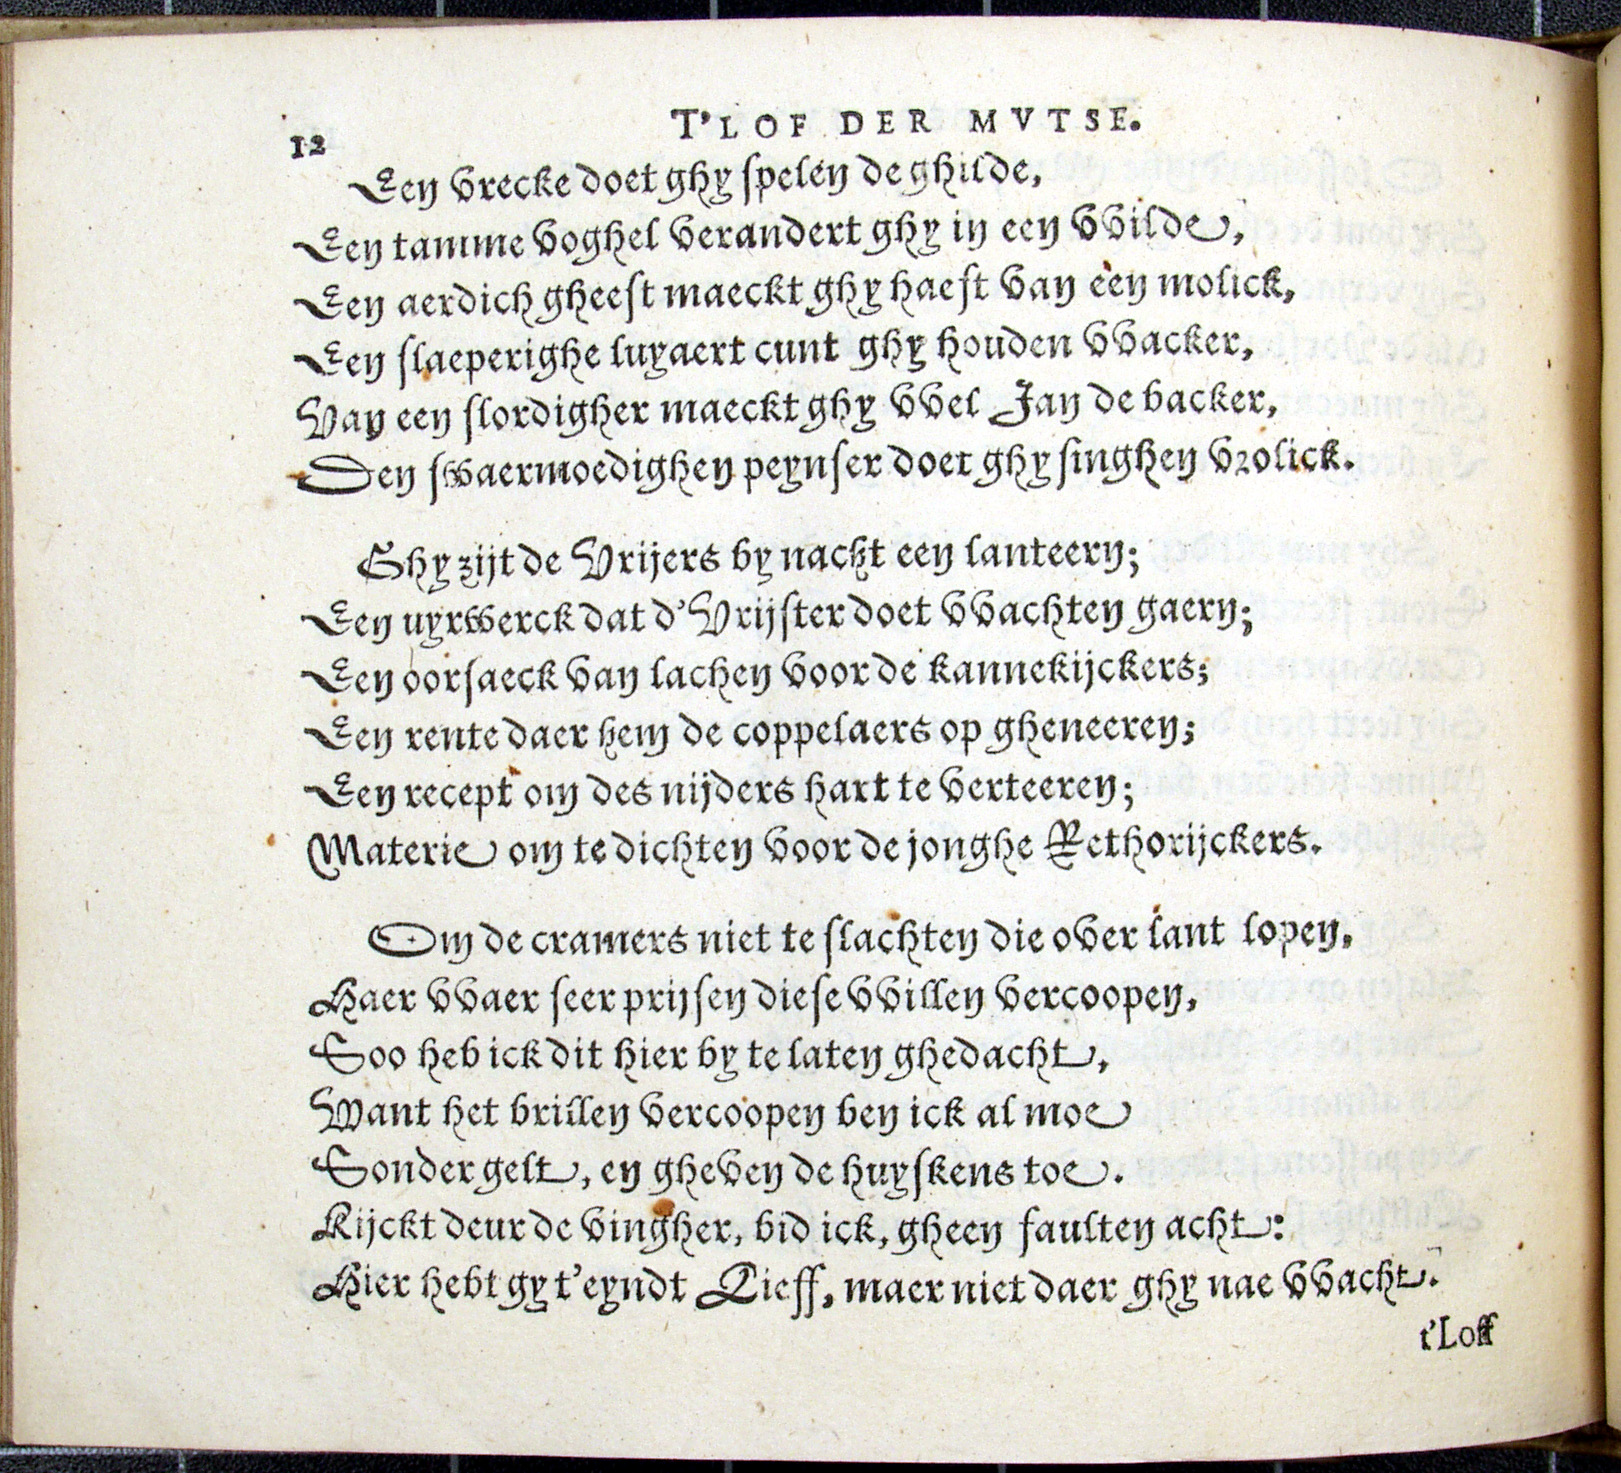 12
T'LOF DER MVTSE.
Een vrecke doet ghy spelen de ghilde,
Een tamme voghel verandert ghy in een vvilde,
Een aerdich gheest maeckt ghy haest van een molick,
Een slaeperighe luyaert cunt ghy houden vvacker,
Van een slordigher maeckt ghy vvel Jan de backer,
Den swaermoedighen peynser doet ghy singhen vrolick.
Ghy zijt de Vrijers by nacht een lanteern;
Een uyrwerck dat d'Vrijster doet vvachten gaern;
Een oorsaeck van lachen voor de kannekijckers;
Een rente daer hem de coppelaers op gheneeren;
Een recept om des nijders hart te verteeren;
Materie om te dichten voor de jonghe Rethorijckers.
Om de cramers niet te slachten die over lant lopen,
Haer vvaer seer prijsen diese vvillen vercoopen,
Soo heb ick dit hier by te laten ghedacht,
Want het brillen vercoopen ben ick al moe
Sonder gelt, en gheven de huyskens toe.
Kijckt deur de vingher, bid ick, gheen faulten acht:
Hier hebt gy t'eyndt Lieff, maer niet daer ghy nae vvacht.
t'Loff